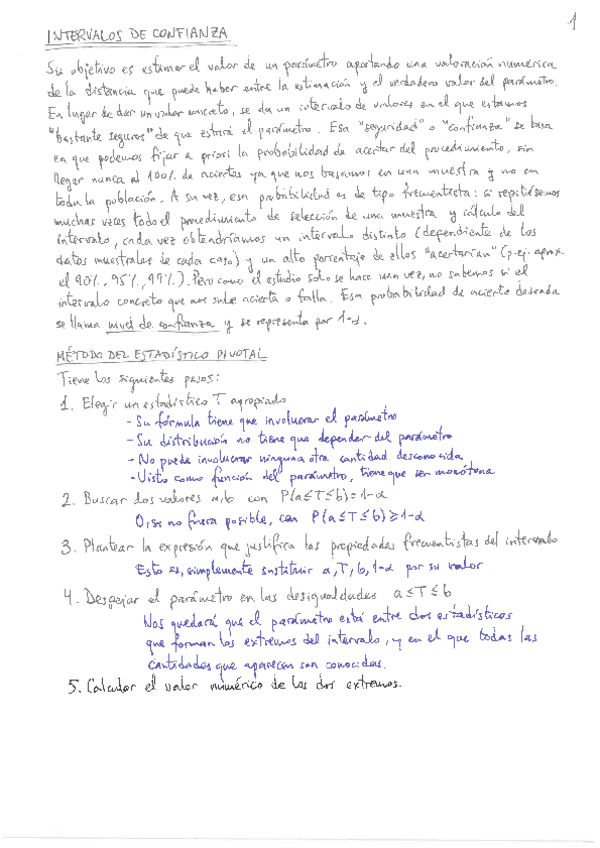 1
INTERVALOS DE CONFIANZA
Su objetivo es estimar el valor de un parámetro aportando una valoración numérica
de la distancia que puede haber entre la estimación y el verdadero valor del parámetro.
En lugar de dar un valor concreto, se da un intervalo de valores en el que estamos
"bastante seguros" de que estará el parámetro. Esa "seguridad" o "confianza" se basa
en que podemos fijar a priori la probabilidad de acertar del procedimiento, sin
llegar nunca al 100% de aciertos ya que nos basamos en una muestra y no en
toda la población. A su vez, esa probabilidad es de tipo frecuentista: si repitiésemos
muchas veces todo el procedimiento de selección de una muestra y cálculo del
intervalo, cada vez obtendríamos un intervalo distinto (dependiente de los
datos muestrales de cada caso) y un alto porcentaje de ellos "acertarían" (p.ej. aprox.
el 90%, 95%, 99%). Pero como el estudio solo se hace una vez, no sabemos si el
intervalo concreto que nos sale acierta o falla. Esa probabilidad de acierto deseada
se llama nivel de confianza y se representa por 1-α.
MÉTODO DEL ESTADÍSTICO PIVOTAL
Tiene los siguientes pasos:
1. Elegir un estadístico T apropiado
- Su fórmula tiene que involucrar el parámetro
- Su distribución no tiene que depender del parámetro
- No puede involucrar ninguna otra cantidad desconocida
- Visto como función del parámetro, tiene que ser monótona
2. Buscar dos valores a,b con P(a≤T≤b)=1-α
O, si no fuera posible, con P(a≤T≤b)≥1-α
3. Plantear la expresión que justifica las propiedades frecuentistas del intervalo
Esto es, simplemente sustituir a,T,b,1-α por su valor
4. Despejar el parámetro en las desigualdades a≤T≤b
Nos quedará que el parámetro está entre dos estadísticos
que forman los extremos del intervalo, y en el que todas las
cantidades que aparecen son conocidas.
5. Calcular el valor numérico de los dos extremos.